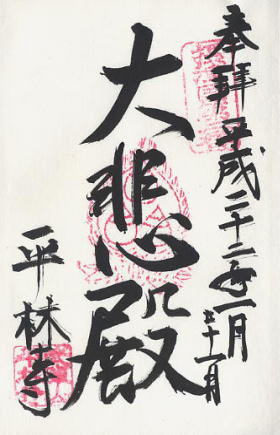 奉拝 平成二十二年一月
大悲殿
平林寺